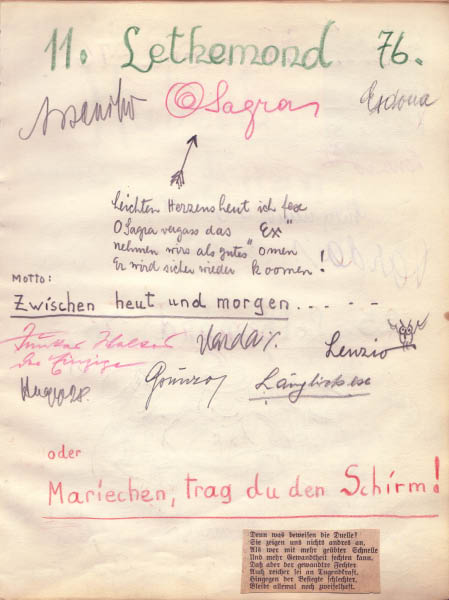 11. Lethemond 76.
OSagra Esdona
Leichten Herzens heut ich fexe
O Sagra vergass das "Ex"
nehmen wirs als gutes "omen
Er wird sicher wieder koomen!
MOTTO:
Zwischen heut und morgen.....
Junker Halse
Das Einzige
Varda
Lenzio
oder
Mariechen, trag du den Schirm!
Denn was beweisen die Duelle?
Sie zeigen uns nichts andres an,
Als wer mit mehr geübter Schnelle
Und mehr Gewandtheit fechten kann.
Daß aber der gewandtre Fechter
Auch reicher sei an Tugendkraft,
Hingegen der Besiegte schlechter,
Bleibt allemal noch zweifelhaft.